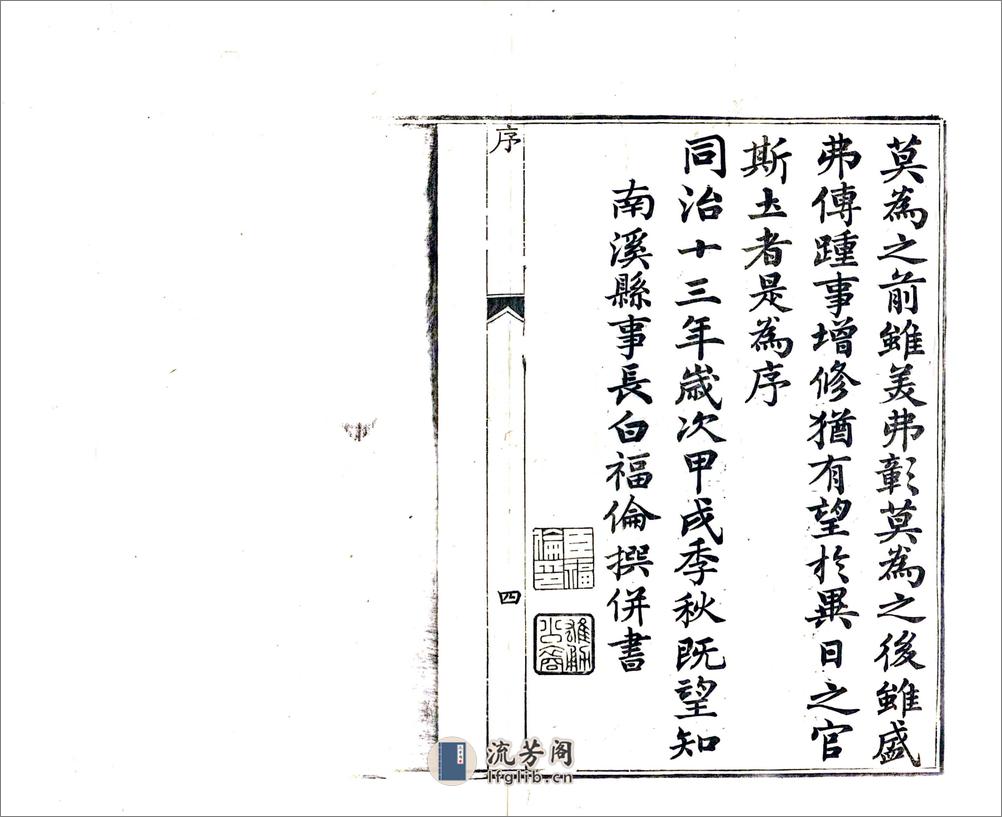 莫為之前雖美弗彰莫為之後雖盛
弗傳踵事增修猶有望於異日之官
斯土者是為序
同治十三年歲次甲戌季秋既望知
南溪縣事長白福倫撰併書
序
四
流芳阁
lfglib.cn